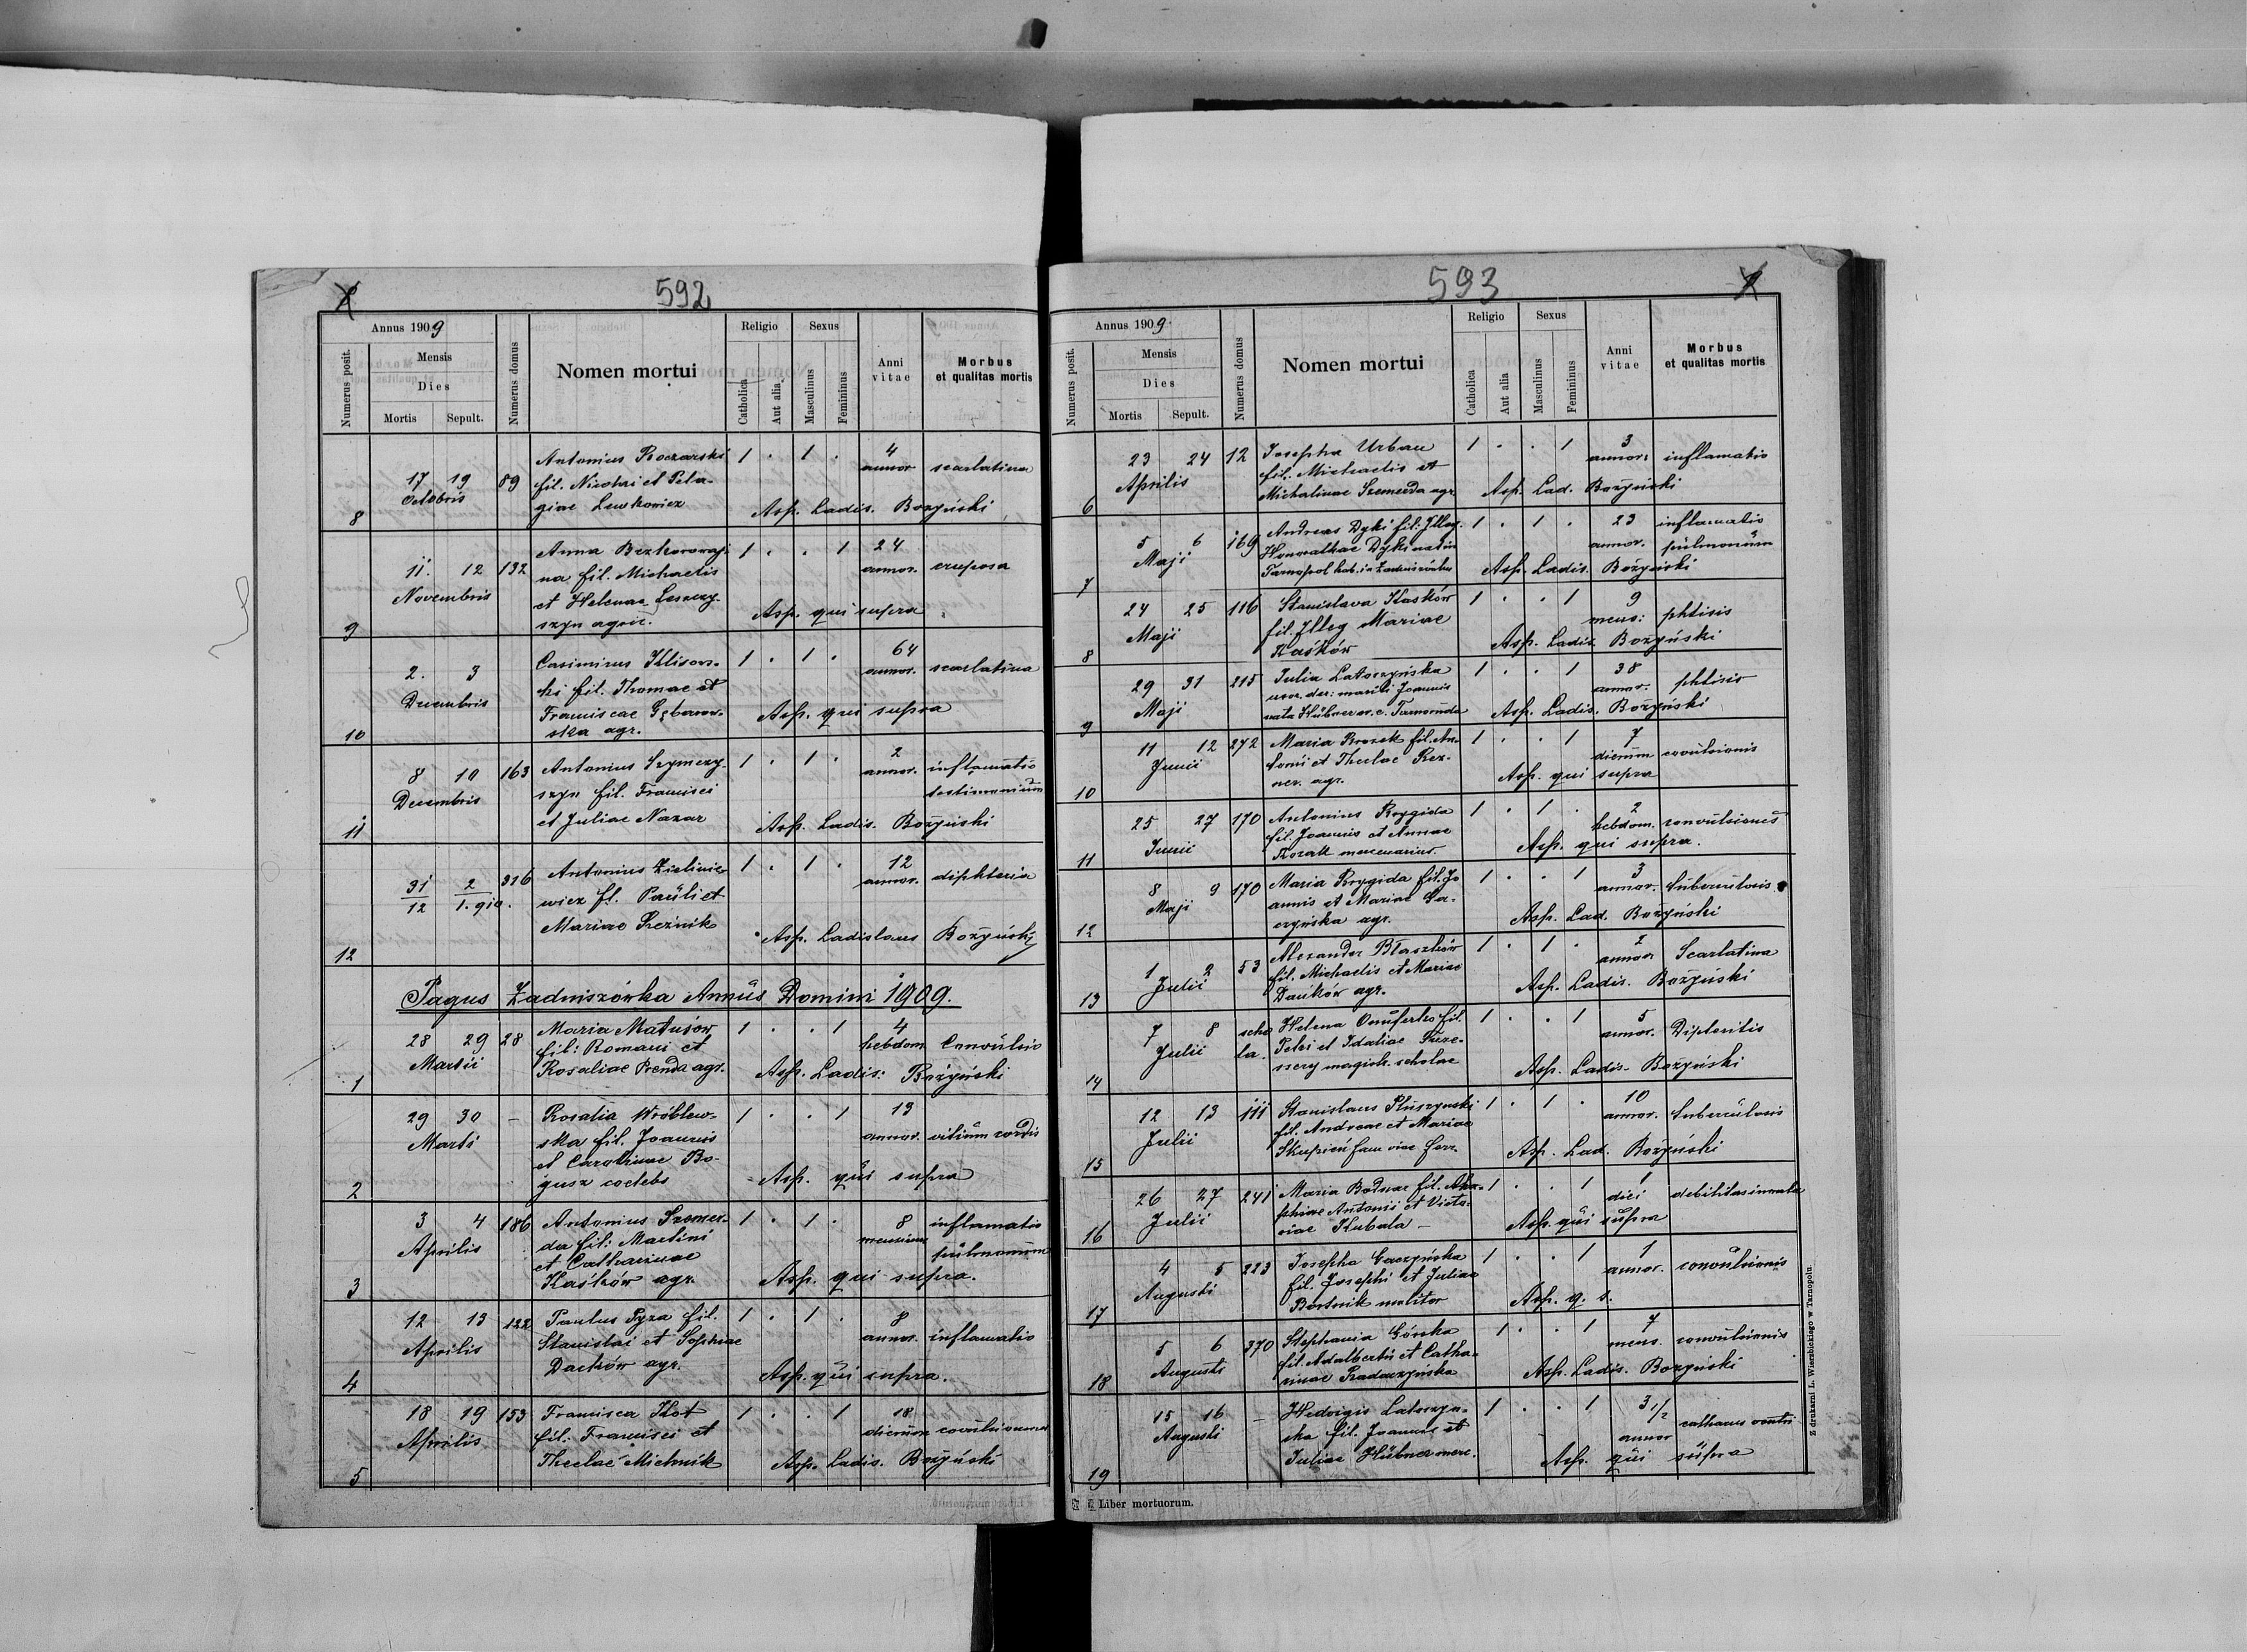 592
Annus 1909
Numerus posit.
Mensis
Dies
Mortis Sepult.
Numerus domus
Nomen mortui
Religio
Catholica
Aut alia
Sexus
Masculinus
Femininus
Anni vitae
Morbus et qualitas mortis
Antonius Roczarski 1 . 1 . 4
17 19 89 fil. Nicolai et Pela- annor. scarlatina
Octobris giae Lewkowicz
8 Asp. Ladis. Bożyński
Anna Bezkorowaj- 1 . . 1 24
11. 12 132 na fil. Michaelis annor. cruposa
Novembris et Helenae Leszczy-
9 szyn agric. Asp. qui supra
Casimirus Klisow- 1 . 1 . 64
2. 3 ski fil. Thomae et annor. scarlatina
Decembris Franciscae Gębarow-
10 ska agr. Asp. qui supra
8 10 163 Antonius Szymczy- 1 . 1 . 2
Decembris szyn fil. Francisci annor. inflamatio
11 et Juliae Nazar Asp. Ladis. Bożyński
Antonius Zielinie- 1 . 1 . 12
31/12 2/1. 316 wicz fil. Pauli et annor. diphteria
Mariae Reźnik
12 Asp. Ladislaus Bożyński
Pagus Zadniszówka Annus Domini 1909.
28 29 28 Maria Matusów 1 . . 1 4
Martii fil: Romani et hebdom. Convulsio
1 Rosaliae Prenda agr. Asp. Ladis: Bożyński
29 30 - Rosalia Wróblew- 1 . . 1 13
Marti ska fil. Joannis annor. vitium cordis
et Carolinae Bo-
2 gusz coelebs Asp. qui supra
3 4 186 Antonius Szemer- 1 . 1 . 8 inflamatio
Aprilis da fil: Martini mensium pulmonum
et Catharinae
3 Kaśków agr. Asp. qui supra.
12 13 122 Paulus Pyza fil. 1 . 1 . 8
Aprilis Stanislai et Sophiae annor. inflamatio
4 Daćków agr. Asp. qui supra.
18 19 153 Francisca Kot 1 . . 1 18
Aprilis fil: Francisci et dierum
5 Theclae Michnik Asp. Ladis. Bożyński
593
Annus 1909
Numerus posit.
Mensis
Dies
Mortis Sepult.
Numerus domus
Nomen mortui
Religio
Catholica
Aut alia
Sexus
Masculinus
Femininus
Anni vitae
Morbus et qualitas mortis
23 24 12 Josepha Urban 1 . . 1 3
Aprilis fil. Michaelis et annor: inflamatio
6 Michalinae Szemerda agr. Asp. Lad. Bożyński
5 6 169 Andreas Dyki fil: Illeg. 1 . 1 . 23 inflamatio
Maji Dyki nat in annor. pulmonum
7 Tarnopol hab. in Zadniszówka Asp. Ladis. Bożyński
24 25 116 Stanislava Kaśków 1 . . 1 9
Maji fil. Illeg Mariae mens: phtisis
8 Kaśków Asp. Ladis. Bożyński
29 31 215 Julia Latoszyńska 1 . . 1 38
Maji uxor. der: mariti Joannis annor. phtisis
9 nata Hübner Asp. Ladis. Bożyński
11 12 272 Maria Brozek fil. An- 1 . . 1 7
Junii tonii et Theclae Rez- dierum covulsionis
10 ner. agr. Asp. qui supra
25 27 170 Antonius Prygida 1 . 1 . 2
Junii fil. Joannis et Annae hebdom. convulsiones
11 Kozak mercenarius. Asp. qui supra.
8 9 170 Maria Prygida fil. Jo 1 . . 1 3
Maji annis et Mariae annor. tuberculosis
12 agr. Asp. Lad. Bożyński
1 2 53 Alexander Błaszków 1 . 1 . 2
Julii fil. Michaelis et Mariae annor Scarlatina
13 Dańków agr. Asp. Ladis. Bożyński
7 8 scho Helena Onuferko fil. 1 . . 1 5
Julii la. Petri et Idaliae annor. Dipteritis
14 magistr. scholae Asp. Ladis. Bożyński
12 13 111 Stanislaus Pluszynski 1 . 1 . 10
Julii fil. Andreae et Mariae annor. tuberculosis
15 Skupień fam viae ferr. Asp. Lad. Bożyński
26 27 241 Maria Bodnar fil. 1 . . 1 1
Julii Antonii et Victo- diei debilitas innata
16 riae Kubala - Asp. qui supra
4 5 223 Josepha Gaczyńska 1 . . 1 1
Augusti fil. Josephi et Juliae annor. convulsionis
17 Bortnik molitor Asp. q. s.
5 6 370 Stephania Górska 1 . . 1 7
Augusti fil. Adalberti et Catha- mens. convulsionis
18 rinae Radaczyńska Asp. Ladis. Bożyński
15 16 - Hedvigis Latoszyn- 1 . . 1 3 1/2
Augusti ska fil. Joannis et annor
19 Juliae Hübner merc. Asp. qui supra
Liber mortuorum.
Z drukarni L. Wierzbickiego w Tarnopolu.